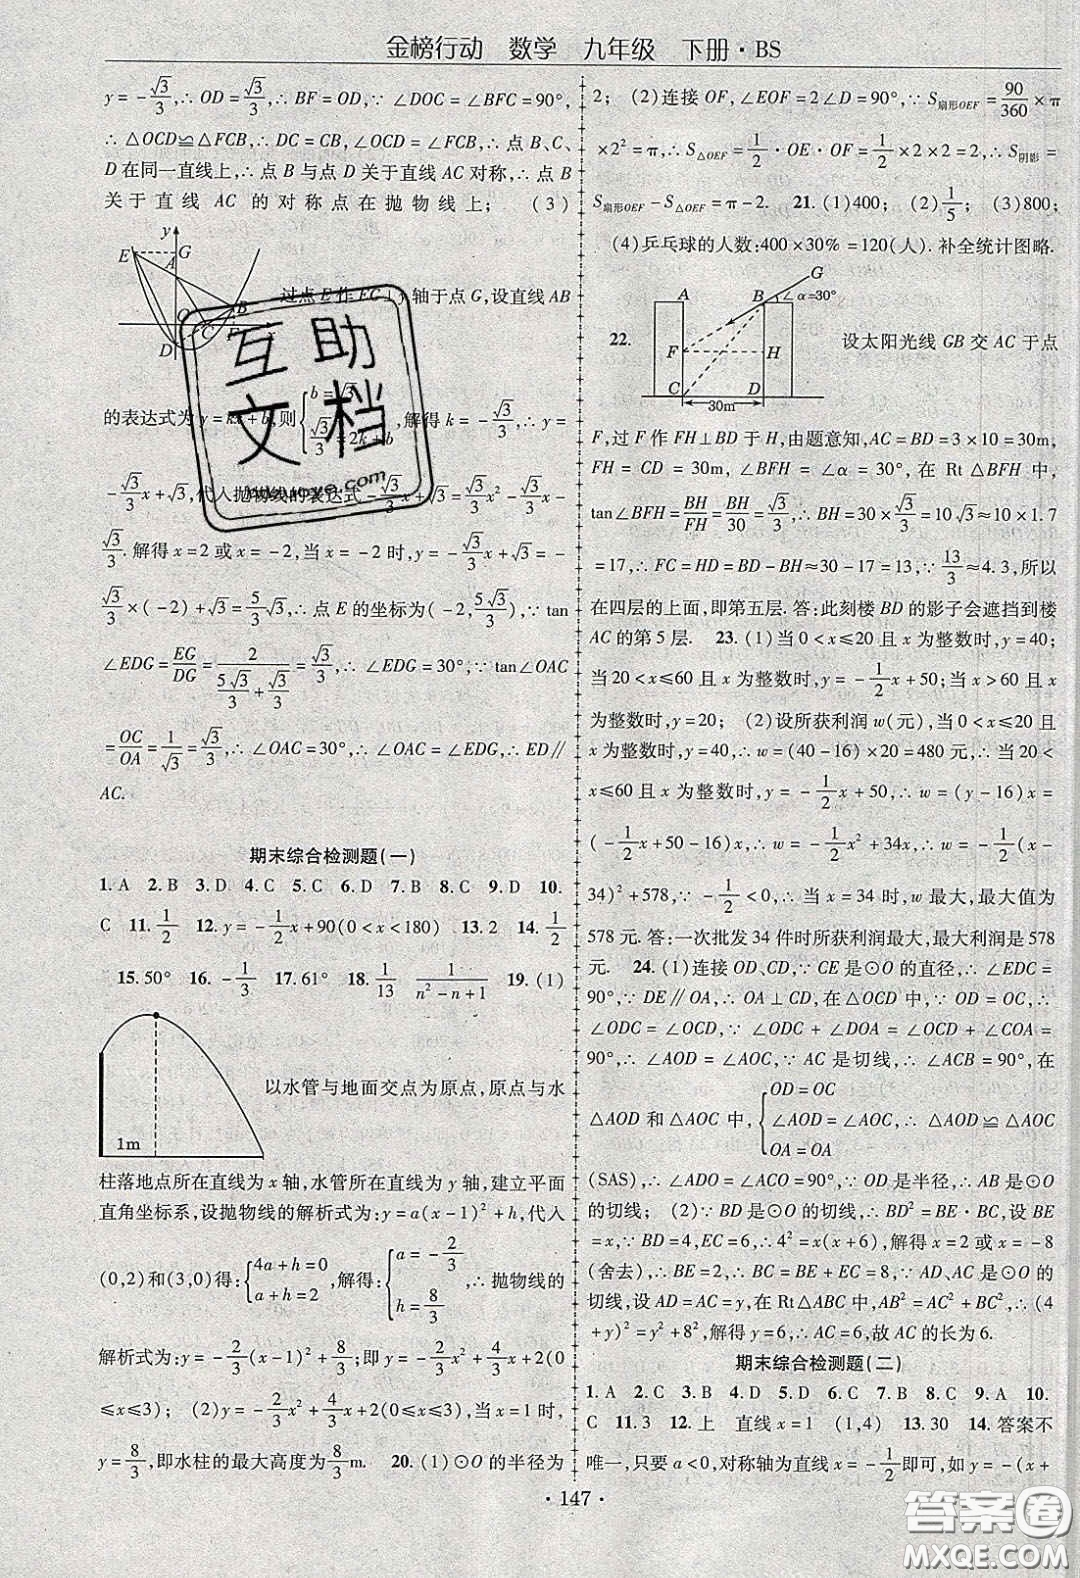 金榜行动 数学 九年级 下册·BS
y=-√3/3,∴OD=√3/3,∴BF=OD,∵∠DOC=∠BFC=90°,
∴△OCD≌△FCB,∴DC=CB,∠OCD=∠FCB,∴点B、C、
D在同一直线上,∴点B与点D关于直线AC对称,∴点B
关于直线AC的对称点在抛物线上; (3)
y
E G
A
B
C
D
过点E作EG⊥y轴于点G,设直线AB
的表达式为y=kx+b,则{b=√3 √3/3=2k+b,解得k=-√3/3,∴y=
-√3/3x+√3,代入抛物线的表达式-√3/3x+√3=√3/3x²-√3/3x-
√3/3.解得x=2或x=-2,当x=-2时,y=-√3/3x+√3=-
√3/3×(-2)+√3=5√3/3,∴点E的坐标为(-2,5√3/3),∵tan
∠EDG=EG/DG=2/(5√3/3+√3/3)=√3/3,∴∠EDG=30°,∵tan∠OAC
=OC/OA=1/√3=√3/3,∴∠OAC=30°,∴∠OAC=∠EDG,∴ED∥
AC.
期末综合检测题(一)
1.A 2.B 3.D 4.C 5.C 6.D 7.B 8.C 9.D 10.
C 11.1/2 12.y=-1/2x+90(0<x<180) 13.2 14.1/2
15.50° 16.-1/3 17.61° 18.1/13 1/(n²-n+1) 19.(1)
1m
以水管与地面交点为原点,原点与水
柱落地点所在直线为x轴,水管所在直线为y轴,建立平面
直角坐标系,设抛物线的解析式为:y=a(x-1)²+h,代入
(0,2)和(3,0)得:{4a+h=0 a+h=2,解得:{a=-2/3 h=8/3,∴抛物线的
解析式为:y=-2/3(x-1)²+8/3;即y=-2/3x²+4/3x+2(0
≤x≤3); (2)y=-2/3x²+4/3x+2(0≤x≤3),当x=1时,
y=8/3,即水柱的最大高度为8/3m. 20.(1)⊙O的半径为
2; (2)连接OF,∠EOF=2∠D=90°,∵S扇形OEF=90/360×π
×2²=π,∴S△OEF=1/2·OE·OF=1/2×2×2=2,∴S阴影=
S扇形OEF-S△OEF=π-2. 21.(1)400; (2)1/5; (3)800;
(4)乒乓球的人数:400×30%=120(人).补全统计图略.
22.
A B G α=30°
F H
C D
30m
设太阳光线GB交AC于点
F,过F作FH⊥BD于H,由题意知,AC=BD=3×10=30m,
FH=CD=30m,∠BFH=∠α=30°,在Rt△BFH中,
tan∠BFH=BH/FH=BH/30=√3/3,∴BH=30×√3/3=10√3≈10×1.7
=17,∴FC=HD=BD-BH≈30-17=13,∵13/3≈4.3,所以
在四层的上面,即第五层.答:此刻楼BD的影子会遮挡到楼
AC的第5层. 23.(1)当0<x≤20且x为整数时,y=40;
当20<x≤60且x为整数时,y=-1/2x+50;当x>60且x
为整数时,y=20; (2)设所获利润w(元),当0<x≤20且
x为整数时,y=40,∴w=(40-16)×20=480元,当20<
x≤60且x为整数时,y=-1/2x+50,∴w=(y-16)x=
(-1/2x+50-16)x,∴w=-1/2x²+34x=-1/2(x-
34)²+578,∵-1/2<0,∴当x=34时,w最大,最大值为
578元.答:一次批发34件时所获利润最大,最大利润是578
元. 24.(1)连接OD、CD,∵CE是⊙O的直径,∴∠EDC=
90°,∵DE∥OA,∴OA⊥CD,在△OCD中,∵OD=OC,∴
∠ODC=∠OCD,∵∠ODC+∠DOA=∠OCD+∠COA=
90°,∴∠AOD=∠AOC,∵AC是切线,∴∠ACB=90°,在
△AOD和△AOC中,{OD=OC ∠AOD=∠AOC,∴△AOD≌△AOC OA=OA
(SAS),∴∠ADO=∠ACO=90°,∵OD是半径,∴AB是⊙O
的切线; (2)∵BD是⊙O的切线,∴BD²=BE·BC,设BE
=x,∵BD=4,EC=6,∴4²=x(x+6),解得x=2或x=-8
(舍去),∴BE=2,∴BC=BE+EC=8,∵AD、AC是⊙O的
切线,设AD=AC=y,在Rt△ABC中,AB²=AC²+BC²,∴(4
+y)²=y²+8²,解得y=6,∴AC=6,故AC的长为6.
期末综合检测题(二)
1.A 2.C 3.B 4.D 5.D 6.C 7.B 8.C 9.A 10.
C 11.3 12.上 直线x=1 (1,4) 13.30 14.答案不
唯一,只要a<0,对称轴为直线x=1/2即可,如y=-(x+
·147·
互助文档
答案圈
MXQE.COM